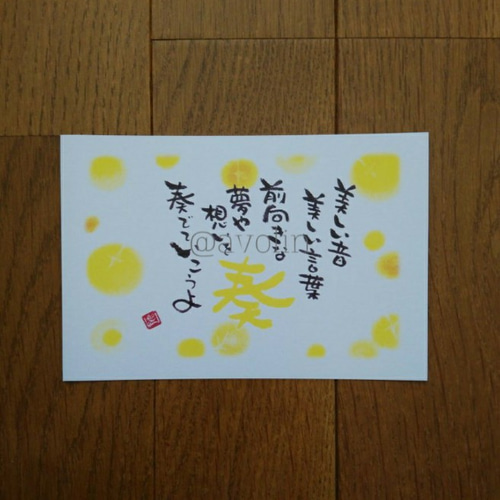 美しい音
美しい言葉
前向きな
夢や
想いを
奏でていこうよ
奏
@avo.in